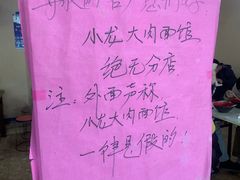 小龙大肉面馆
绝无分店
注:外面声称
小龙大肉面馆
一律是假的!